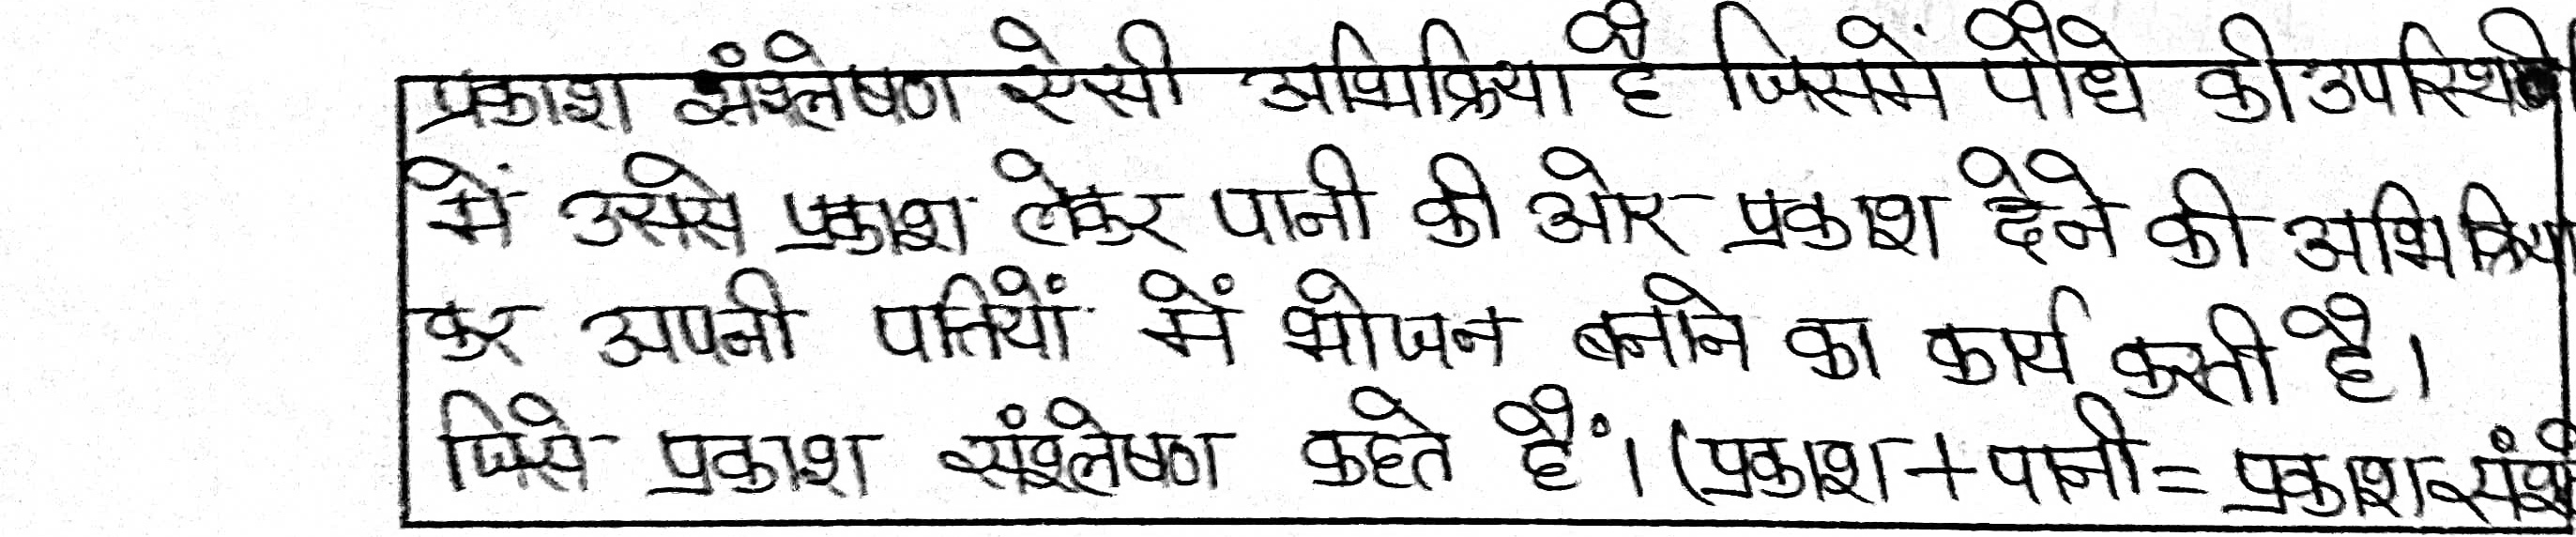 प्रकाश संश्लेषण ऐसी अभिक्रिया है जिसमें पौधे की उपस्थिती
में उससे प्रकाश लेकर पानी की ओर प्रकाश देने की अभिक्रिया
कर अपनी पत्तियों में भोजन बनाने का कार्य करती है।
जिसे प्रकाश संश्लेषण कहते हैं। (प्रकाश + पानी = प्रकाश संश्ले